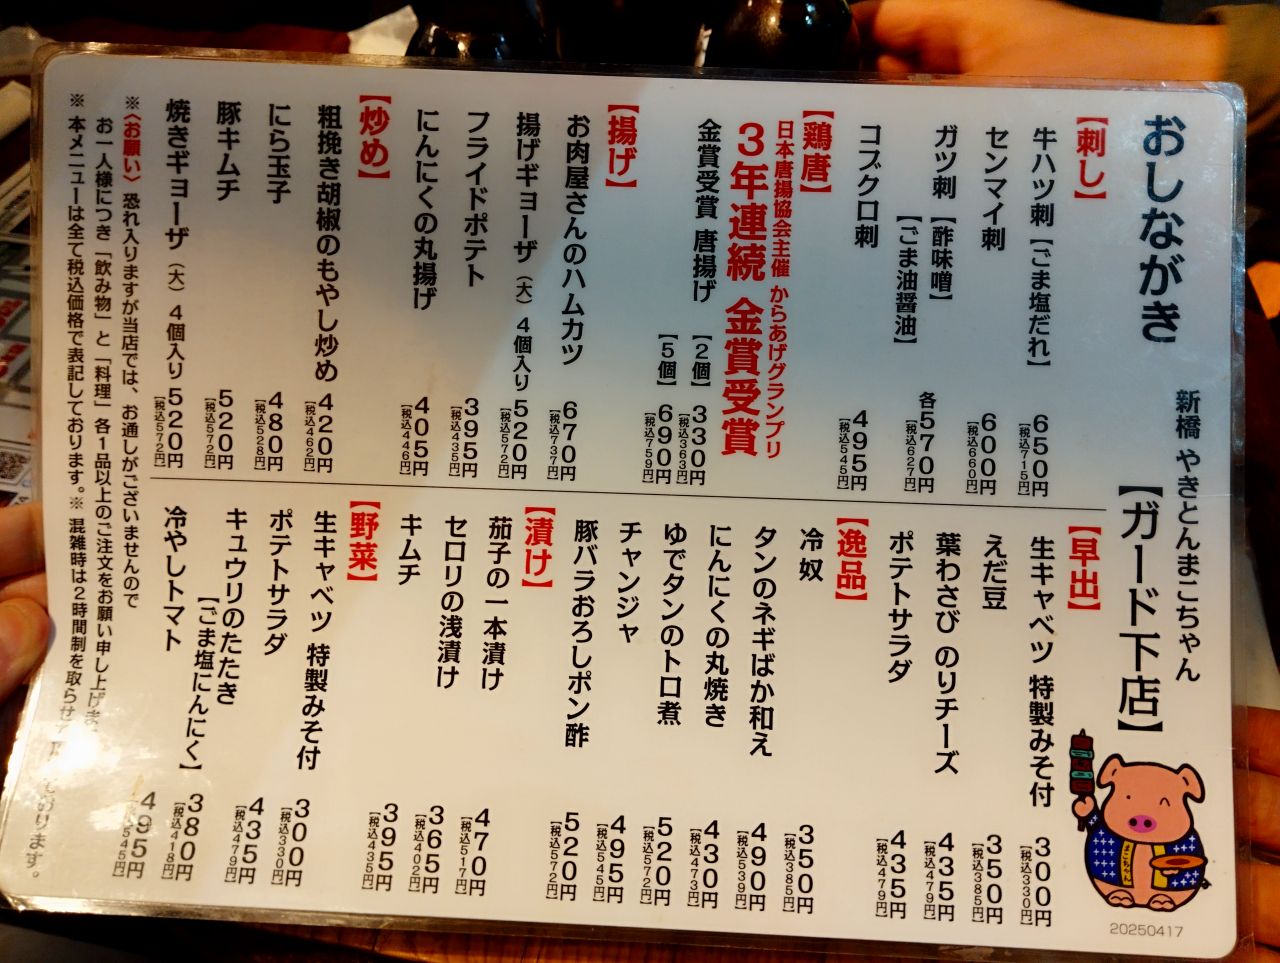 おしながき
新橋 やきとんまこちゃん
【ガード下店】
【刺し】
牛ハツ刺【ごま塩だれ】 650円
【税込715円】
センマイ刺 600円
【税込660円】
ガツ刺【酢味噌】
【ごま油醤油】 各570円
【税込627円】
コブクロ刺 495円
【税込545円】
【鶏唐】
日本唐揚協会主催 からあげグランプリ
3年連続 金賞受賞
金賞受賞 唐揚げ 【2個】 330円
【税込363円】
【5個】 690円
【税込759円】
【揚げ】
お肉屋さんのハムカツ 670円
【税込737円】
揚げギョーザ(大)4個入り 520円
【税込572円】
フライドポテト 395円
【税込435円】
にんにくの丸揚げ 405円
【税込446円】
【炒め】
粗挽き胡椒のもやし炒め 420円
【税込462円】
にら玉子 480円
【税込528円】
豚キムチ 520円
【税込572円】
焼きギョーザ(大)4個入り 520円
【税込572円】
【早出】
生キャベツ 特製みそ付 300円
【税込330円】
えだ豆 350円
【税込385円】
葉わさび のりチーズ 435円
【税込479円】
ポテトサラダ 435円
【税込479円】
【逸品】
冷奴 350円
【税込385円】
タンのネギばか和え 490円
【税込539円】
にんにくの丸焼き 430円
【税込473円】
ゆでタンのトロ煮 520円
【税込572円】
チャンジャ 495円
【税込545円】
豚バラおろしポン酢 520円
【税込572円】
【漬け】
茄子の一本漬け 470円
【税込517円】
セロリの浅漬け 365円
【税込402円】
キムチ 395円
【税込435円】
【野菜】
生キャベツ 特製みそ付 300円
【税込330円】
ポテトサラダ 435円
【税込479円】
キュウリのたたき
【ごま塩にんにく】 380円
【税込418円】
冷やしトマト 495円
【税込545円】
※〈お願い〉 恐れ入りますが当店では、お通しがございませんので
お一人様につき「飲み物」と「料理」各1品以上のご注文をお願い申し上げま
※ 本メニューは全て税込価格で表記しております。※ 混雑時は2時間制を取らせて おります。
まこちゃん
20250417